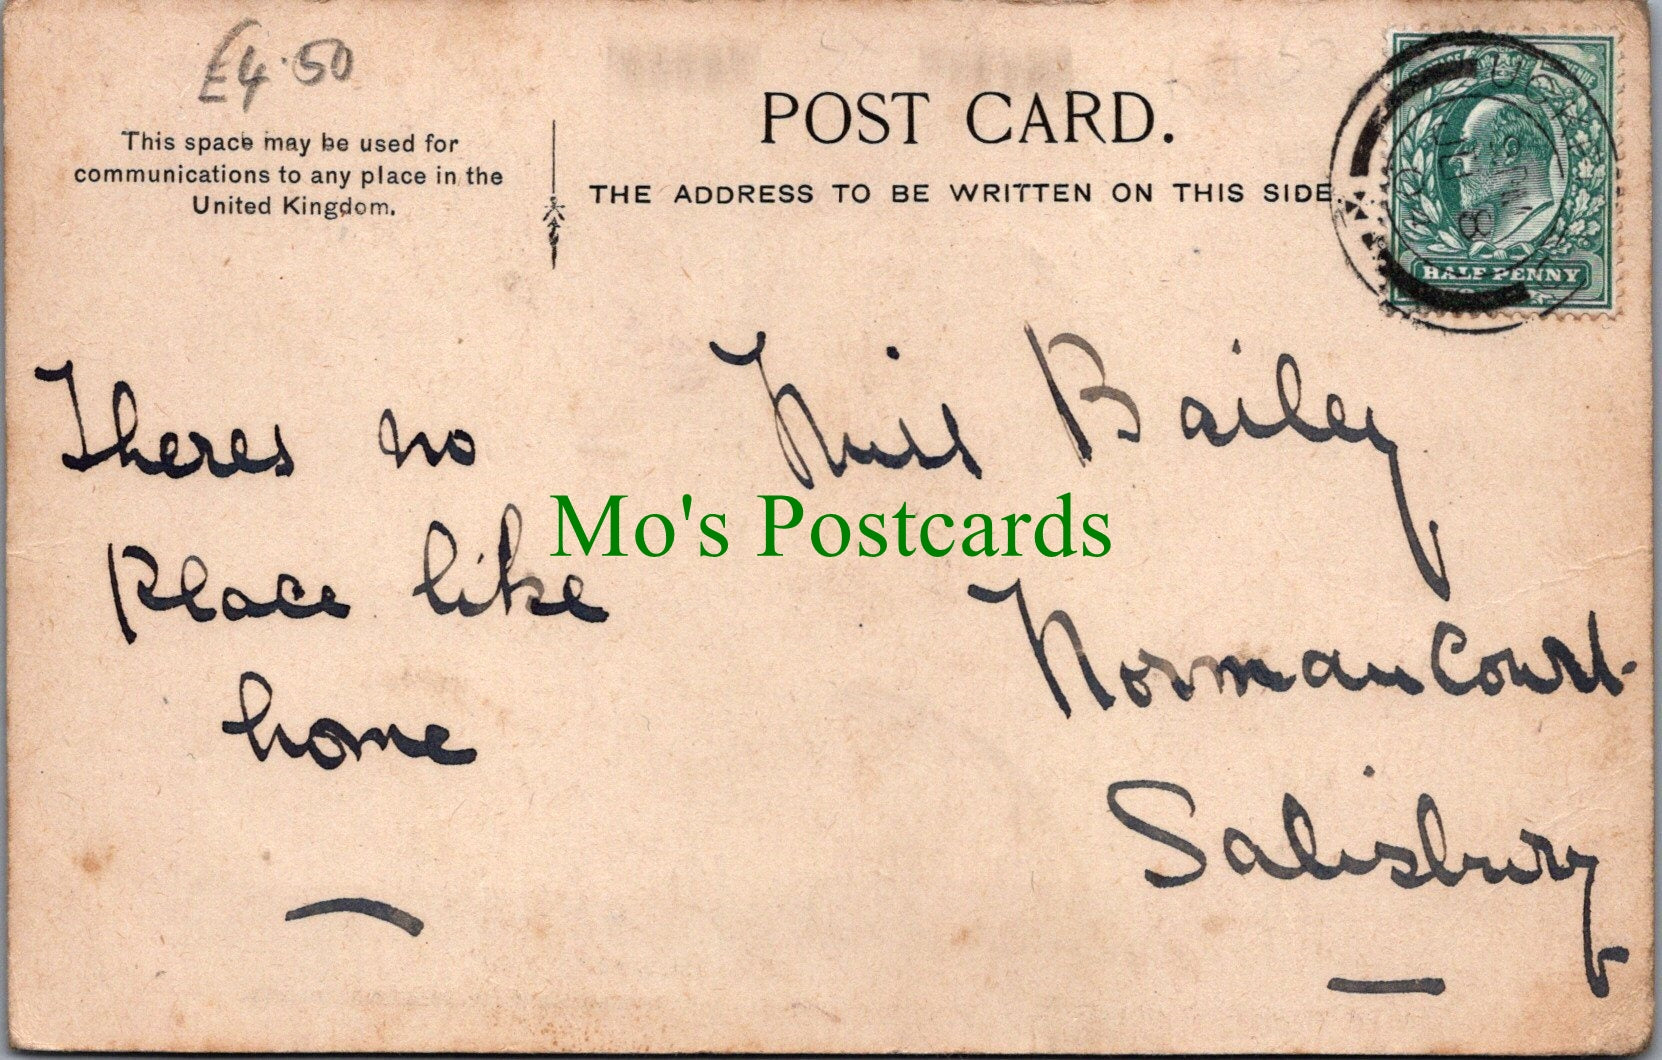 £4.50
This space may be used for
communications to any place in the
United Kingdom.
POST CARD.
THE ADDRESS TO BE WRITTEN ON THIS SIDE.
HALFPENNY
Theres no
place like
home
Miss Bailey
Norman Court
Salisbury
Mo's Postcards